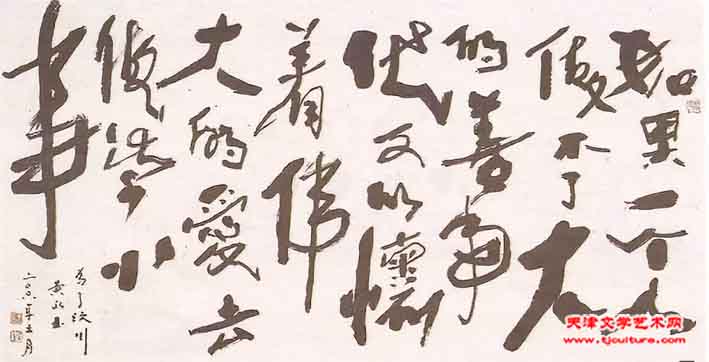 如果一个人
做不了大
的善事
他可以懷
着偉
大的愛去
做些小
事
为了汶川
二〇〇八年五月
天津文学艺术网
www.tjculture.com